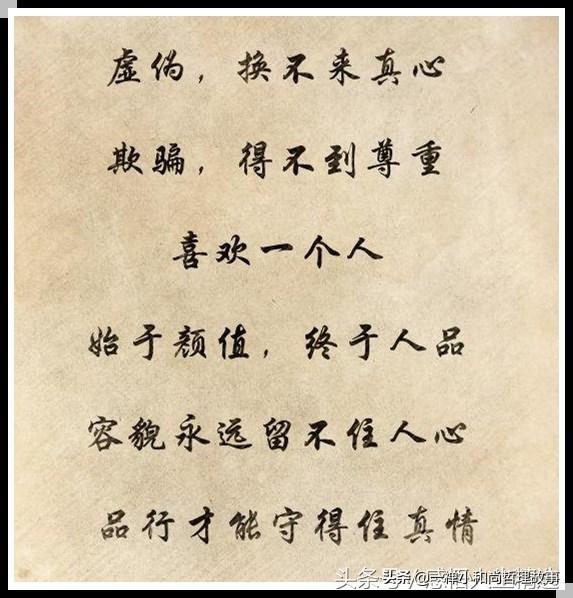 虚伪，换不来真心
欺骗，得不到尊重
喜欢一个人
始于颜值，终于人品
容貌永远留不住人心
品行才能守得住真情
头条@一禅小和尚哲理故事